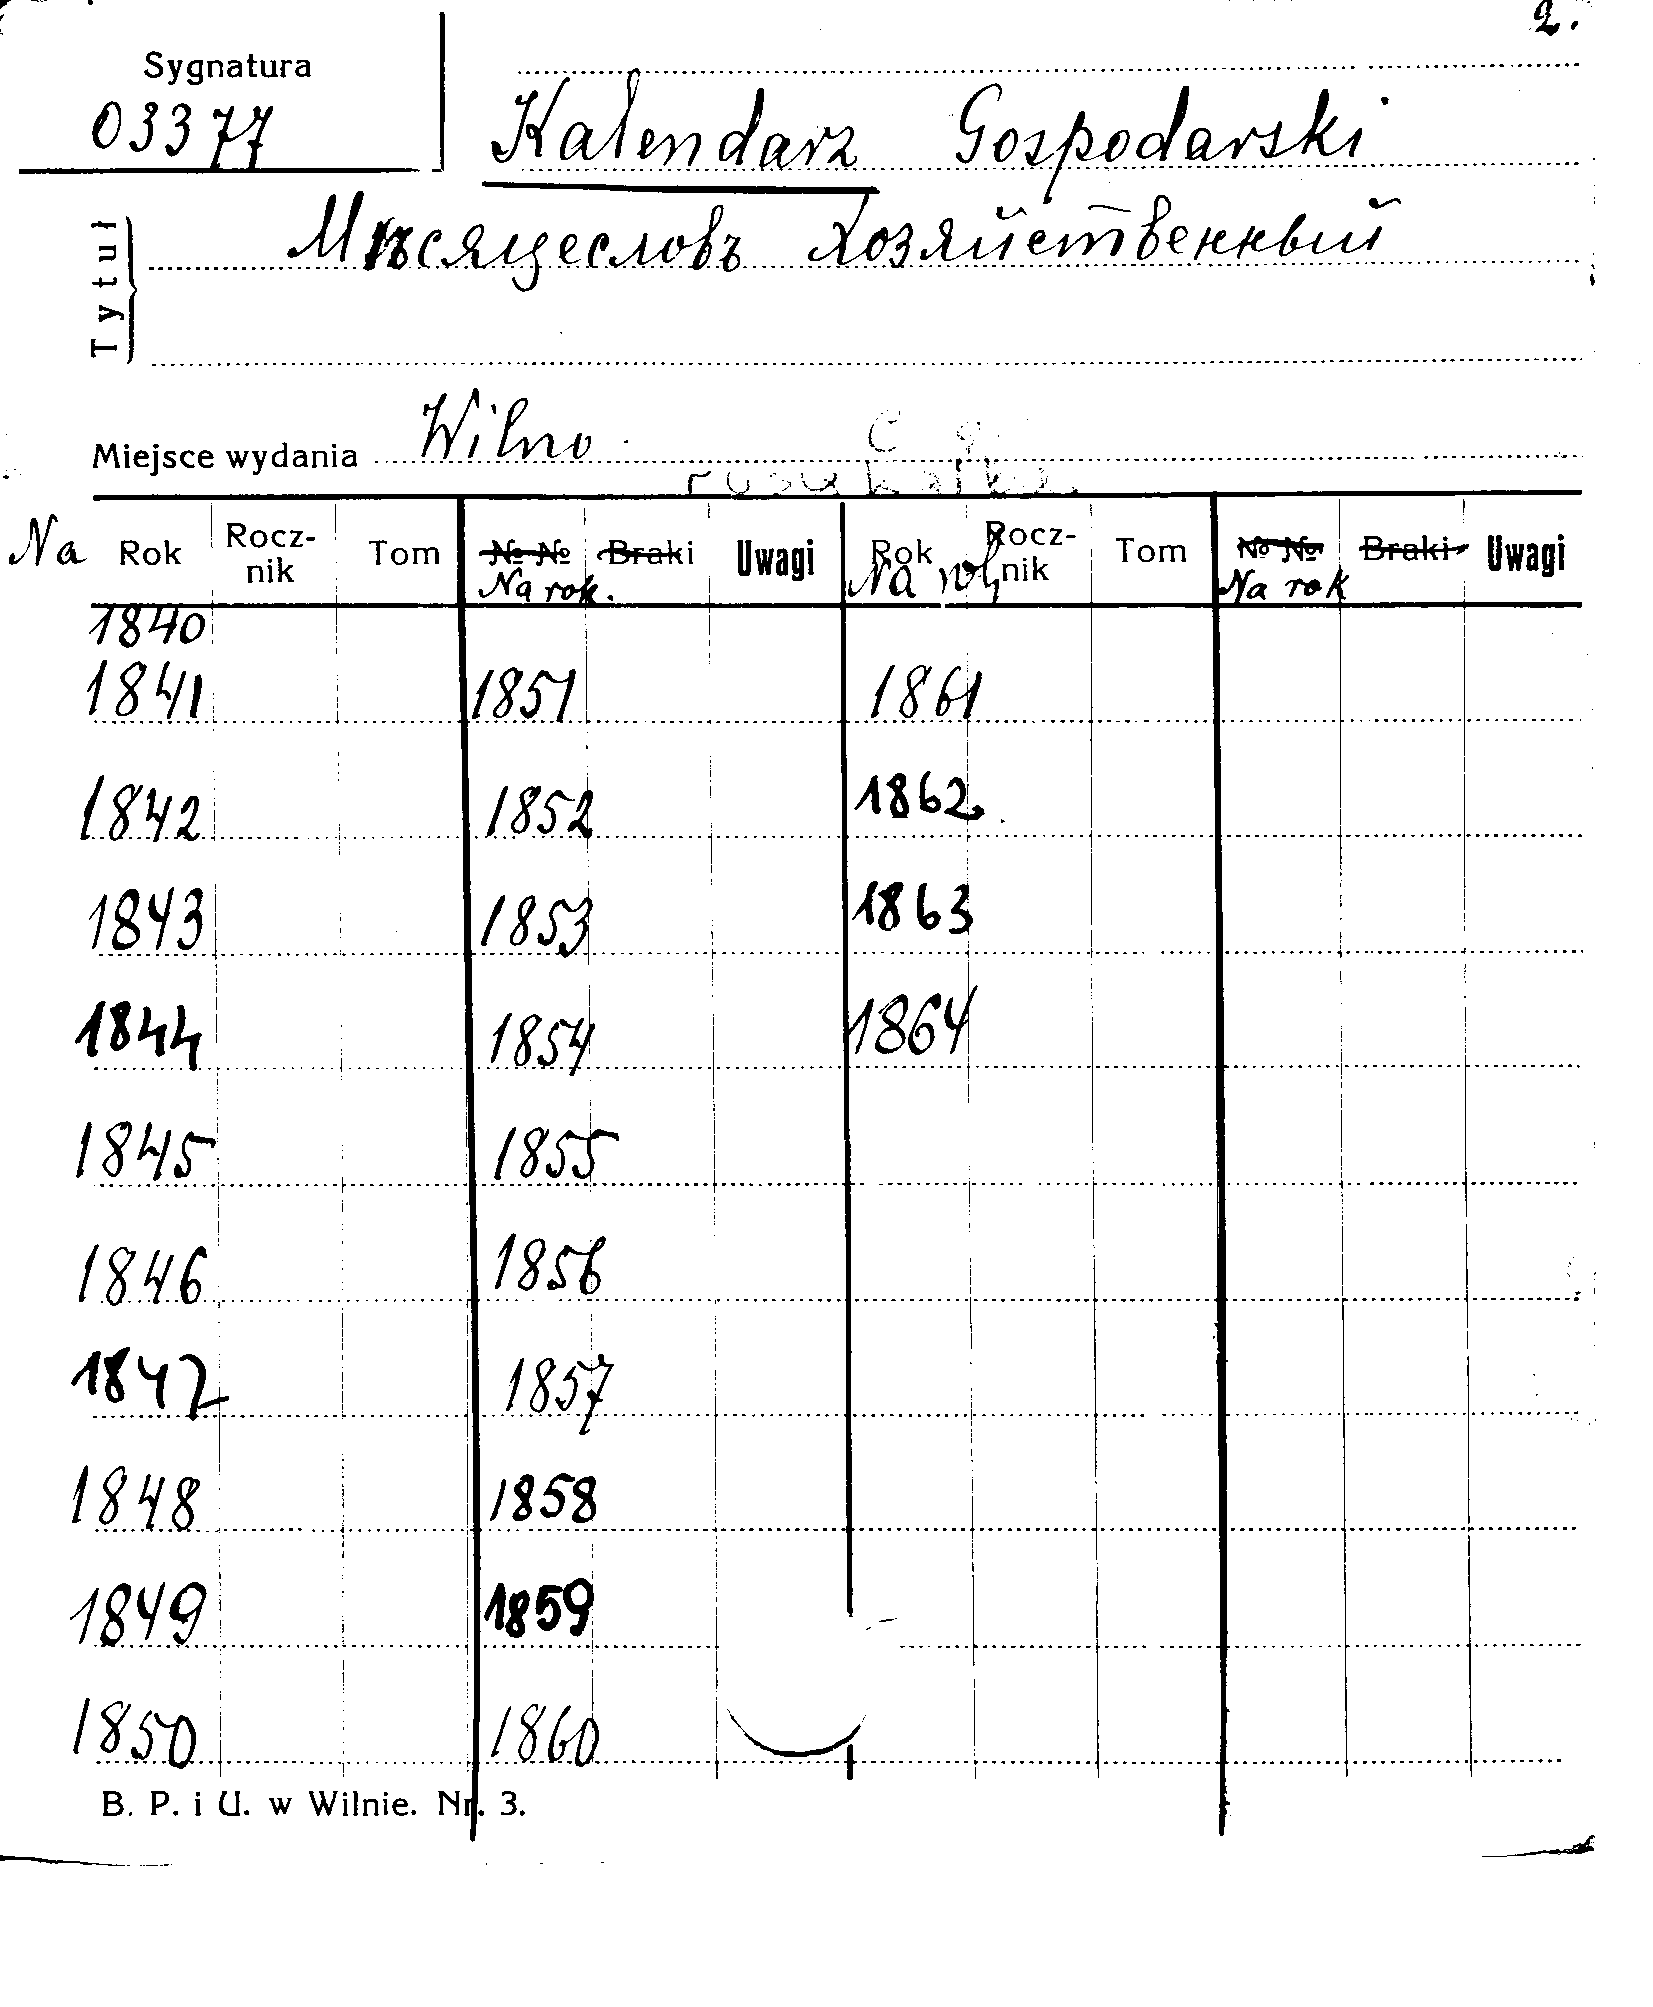 2.
Sygnatura
03377
Kalendarz Gospodarski
Tytuł
Мѣсяцесловъ хозяйственный
Miejsce wydania Wilno
Na Rok Rocz-nik Tom № № Braki Uwagi Rok Rocz-nik Tom № № Braki Uwagi
Na rok. Na rok Na rok
1840
1841 1851 1861
1842 1852 1862.
1843 1853 1863
1844 1854 1864
1845 1855
1846 1856
1847 1857
1848 1858
1849 1859
1850 1860
B. P. i U. w Wilnie. Nr. 3.